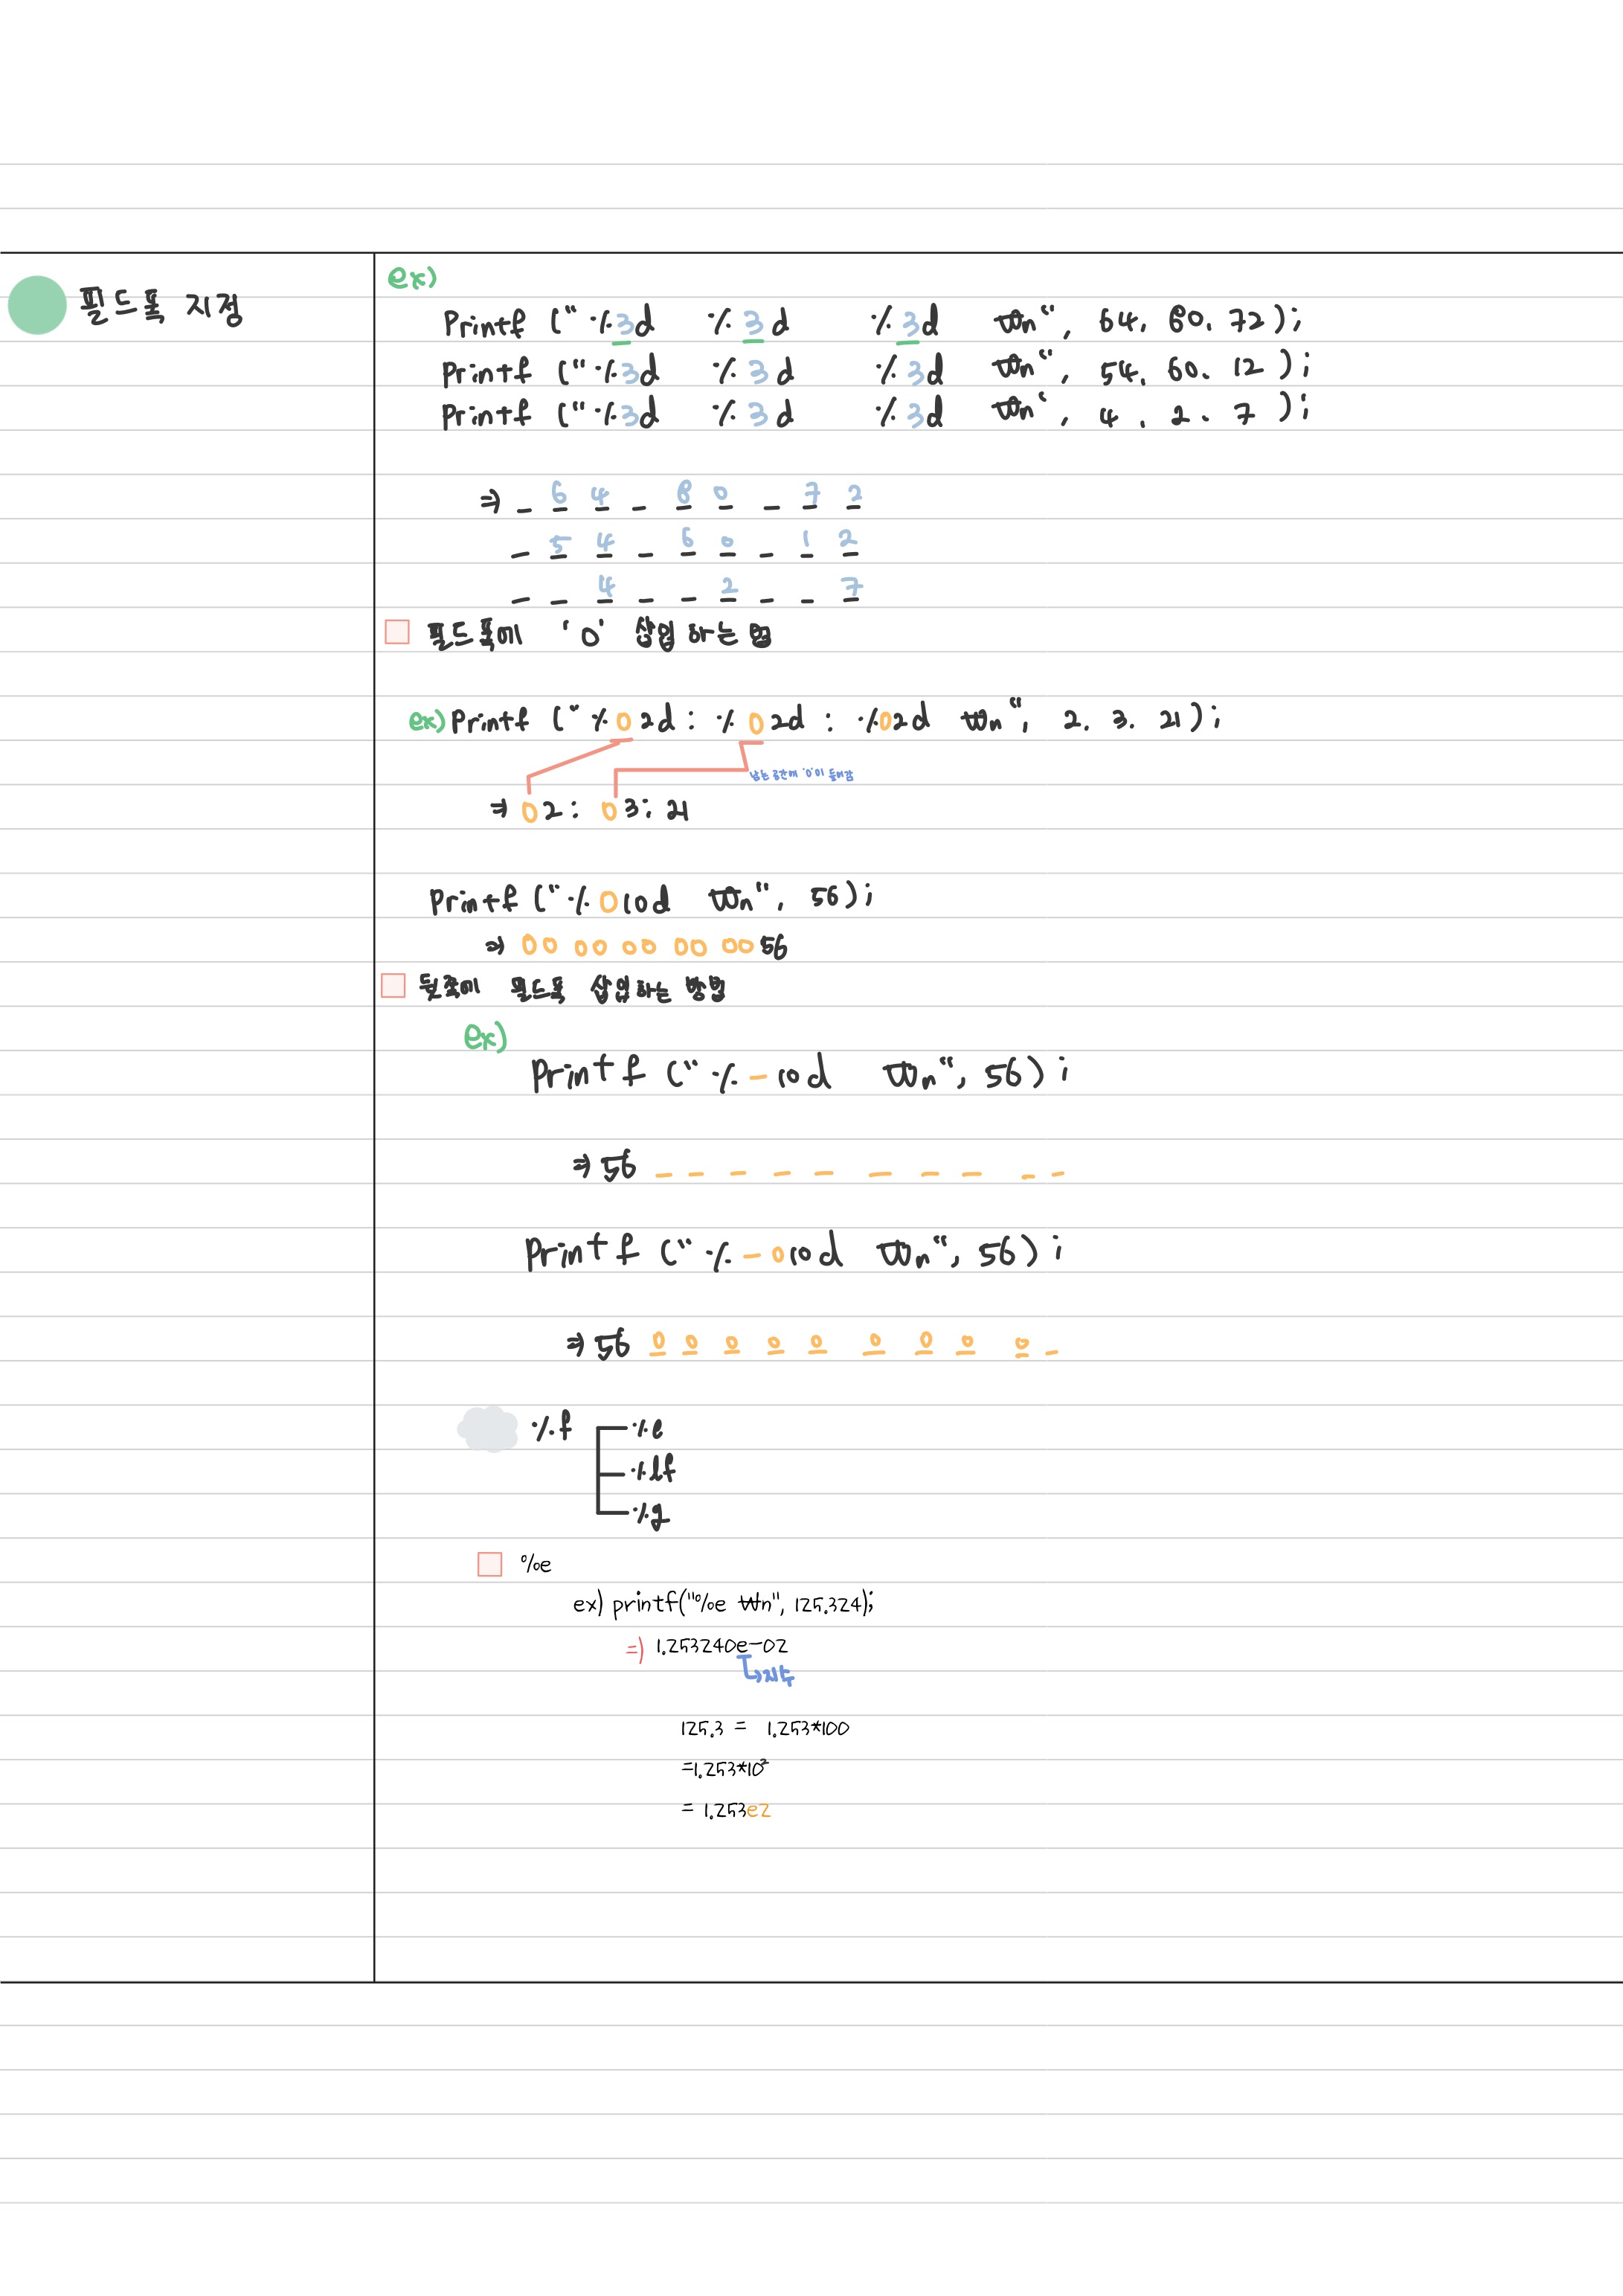 필드폭 지정
ex)
Printf ("%3d %3d %3d ₩n", 64, 80, 72);
Printf ("%3d %3d %3d ₩n", 54, 60, 12);
Printf ("%3d %3d %3d ₩n", 4, 2, 7);
⇒ _ 6 4 _ 8 0 _ 7 2
_ 5 4 _ 6 0 _ 1 2
_ _ 4 _ _ 2 _ _ 7
필드폭에 '0' 삽입 하는 법
ex) Printf ("%02d : %02d : %02d ₩n", 2, 3, 21);
남는 공간에 '0'이 들어감
⇒ 02 : 03 : 21
Printf ("%010d ₩n", 56);
⇒ 00 00 00 00 00 56
뒷쪽에 필드폭 삽입하는 방법
ex)
Printf ("%-10d ₩n", 56);
⇒ 56 _ _ _ _ _ _ _ _ _ _
Printf ("%-010d ₩n", 56);
⇒ 56 0 0 0 0 0 0 0 0 0 _
%f %e
%lf
%g
%e
ex) printf("%e ₩n", 125.324);
=) 1.253240e-02
↳지수
125.3 = 1.253*100
=1.253*10²
= 1.253e2